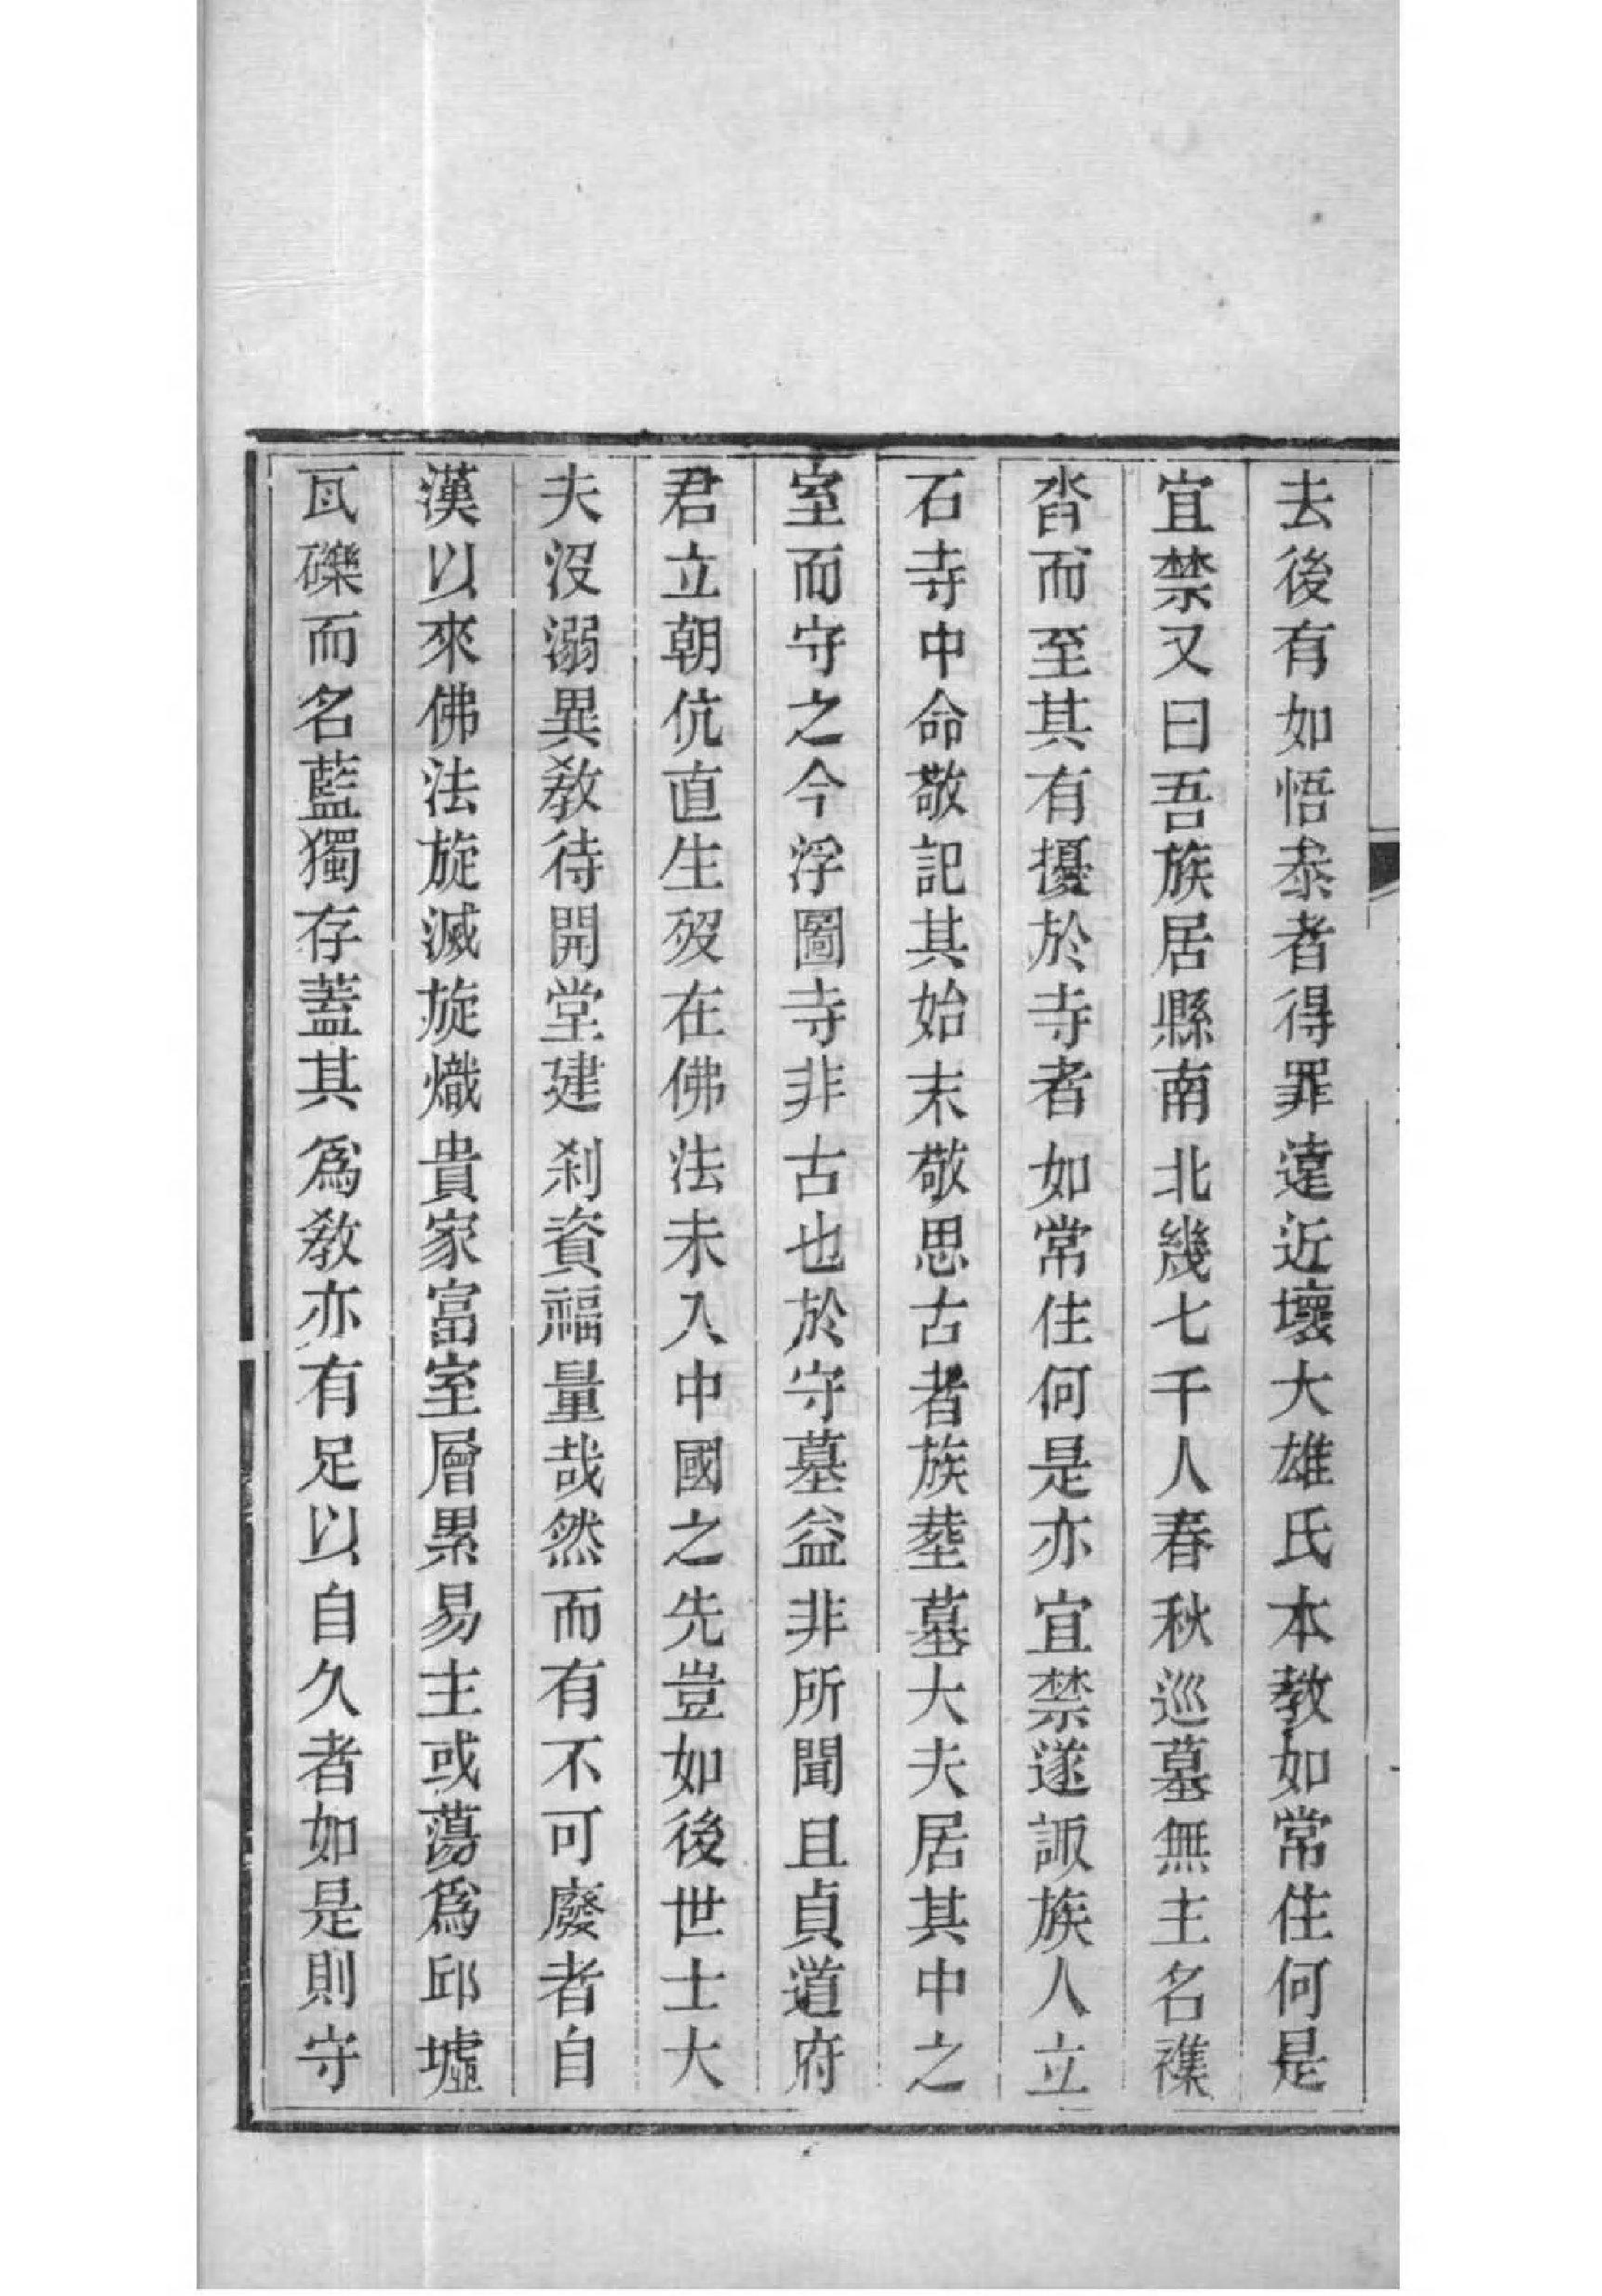 去後有如悟泰者得罪遠近壞大雄氏本教如常住何是
宜禁又曰吾族居縣南北幾七千人春秋巡墓無主名襍
沓而至其有擾於寺者如常住何是亦宜禁遂諏族人立
石寺中命敬記其始末敬思古者族葬墓大夫居其中之
室而守之今浮圖寺非古也於守墓益非所聞且貞道府
君立朝伉直生歿在佛法未入中國之先豈如後世士大
夫沒溺異教待開堂建刹資福量哉然而有不可廢者自
漢以來佛法旋滅旋熾貴家富室層累易主或蕩爲邱墟
瓦礫而名藍獨存蓋其爲教亦有足以自久者如是則守